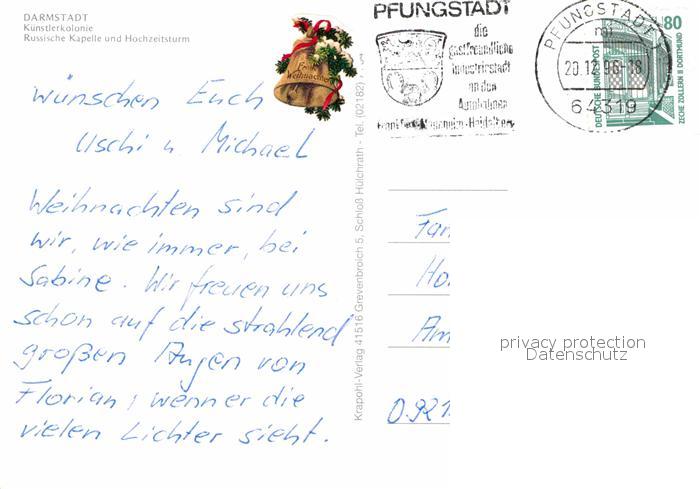 DARMSTADT
Künstlerkolonie
Russische Kapelle und Hochzeitsturm
Frohe
Weihnachten
wünschen Euch
Uschi u Michael
Weihnachten sind
wir, wie immer, bei
Sabine. Wir freuen uns
schon auf die strahlend
großen Augen von
Florian, wenn er die
vielen Lichter sieht.
Krapohl-Verlag 41516 Grevenbroich 5, Schloß Hülchrath - Tel. (02182)
PFUNGSTADT
die
gastfreundliche
Industriestadt
an den
Autobahnen
PFUNGSTADT 1
20.12.96-18
64319
80
DEUTSCHE BUNDESPOST
ZECHE ZOLLERN II DORTMUND
Fam
Ho
Am
0921
privacy protection
Datenschutz